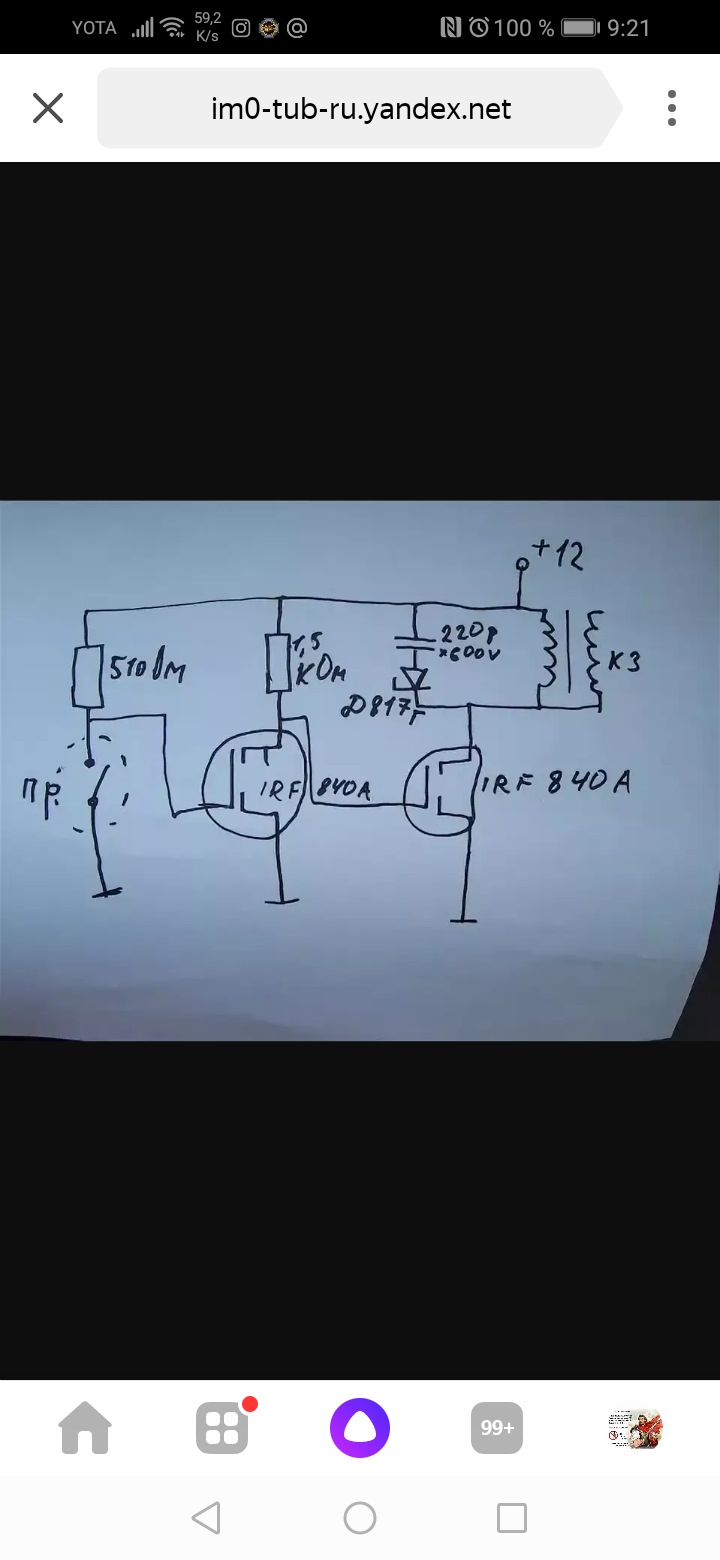 YOTA
59,2
K/s
100 %
9:21
im0-tub-ru.yandex.net
+12
510 Ом
1,5
кОм
220p
×600V
Д817Г
К3
пр.
IRF 840A
IRF 840A
99+